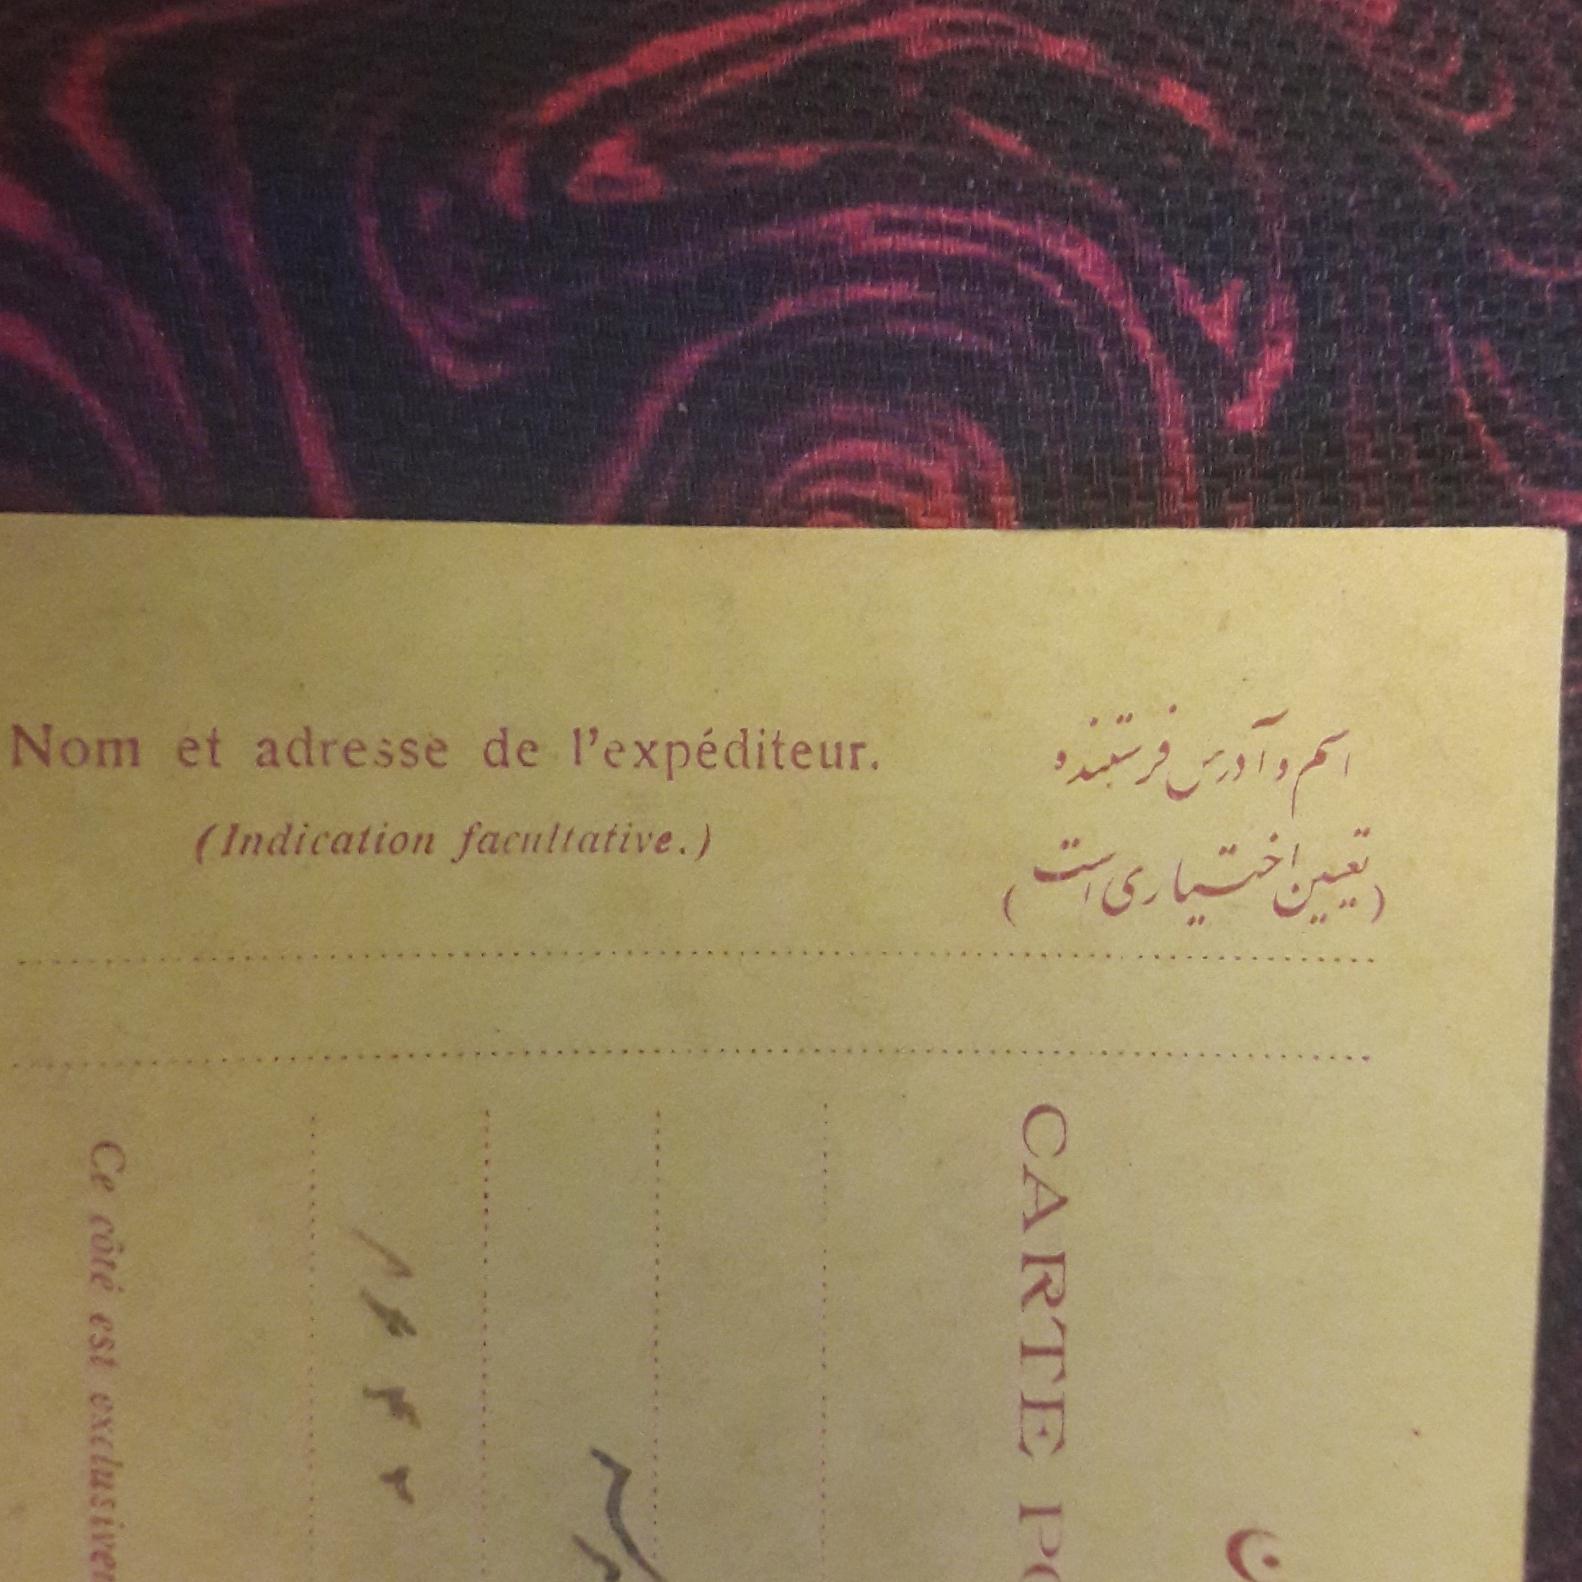 Nom et adresse de l'expéditeur.
اسم و آدرس فرستنده
(Indication facultative.)
(تعیین اختیاری است)
CARTE
Ce côté est